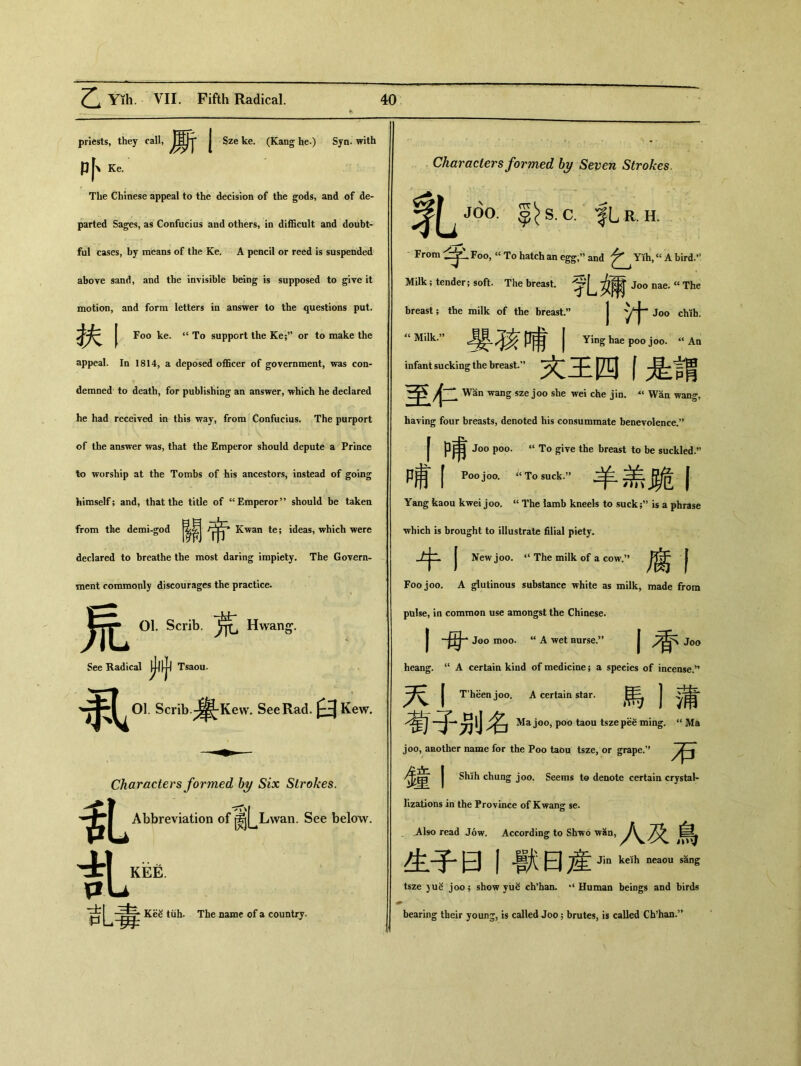 乙 Yĭh. VII. Fifth Radical. 40
priests, they call, 廝 | Sze ke. (Kang he.) Syn. with
卟 Ke.
The Chinese appeal to the decision of the gods, and of de-
parted Sages, as Confucius and others, in difficult and doubt-
ful cases, by means of the Ke. A pencil or reed is suspended
above sand, and the invisible being is supposed to give it
motion, and form letters in answer to the questions put.
扶 | Foo ke. “To support the Ke;” or to make the
appeal. In 1814, a deposed officer of government, was con-
demned to death, for publishing an answer, which he declared
he had received in this way, from Confucius. The purport
of the answer was, that the Emperor should depute a Prince
to worship at the Tombs of his ancestors, instead of going
himself; and, that the title of “Emperor” should be taken
from the demi-god 關帝 Kwan te; ideas, which were
declared to breathe the most daring impiety. The Govern-
ment commonly discourages the practice.
Ol. Scrib. Hwang.
See Radical 艸 Tsaou.
Ol. Scrib. 舉 Kew. See Rad. 臼 Kew.
Characters formed by Six Strokes.
乱 Abbreviation of Lwan. See below.
乩 KËË.
毒 Këĕ tüh. The name of a country.
Characters formed by Seven Strokes.
乳 JOO. S. C. R. H.
From 孚 Foo, “To hatch an egg,” and 乞 Yĭh, “A bird.”
Milk; tender; soft. The breast. 乳嬭 Joo nae. “The
breast; the milk of the breast.” | 汁 Joo chĭh.
“Milk.” 嬰孩哺 | Ying hae poo joo. “An
infant sucking the breast.” 文王四 | 是謂
至仁 Wăn wang sze joo she wei che jin. “Wăn wang,
having four breasts, denoted his consummate benevolence.”
| 哺 Joo poo. “To give the breast to be suckled.”
哺 | Poo joo. “To suck.” 羊羔跪 |
Yang kaou kwei joo. “The lamb kneels to suck;” is a phrase
which is brought to illustrate filial piety.
牛 | New joo. “The milk of a cow.” 腐 |
Foo joo. A glutinous substance white as milk, made from
pulse, in common use amongst the Chinese.
| 母 Joo moo. “A wet nurse.” | 香 Joo
heang. “A certain kind of medicine; a species of incense.”
天 | T'hëen joo. A certain star. 馬 | 蒲
萄子别名 Ma joo, poo taou tsze pëĕ ming. “Ma
joo, another name for the Poo taou tsze, or grape.” 石
鐘 | Shĭh chung joo. Seems to denote certain crystal-
lizations in the Province of Kwang se.
Also read Jów. According to Shwō wăn, 人及鳥
生子曰 | 獸曰產 Jin keĭh neaou săng
tsze yuĕ joo; show yuĕ ch'han. “Human beings and birds
bearing their young, is called Joo; brutes, is called Ch'han.”